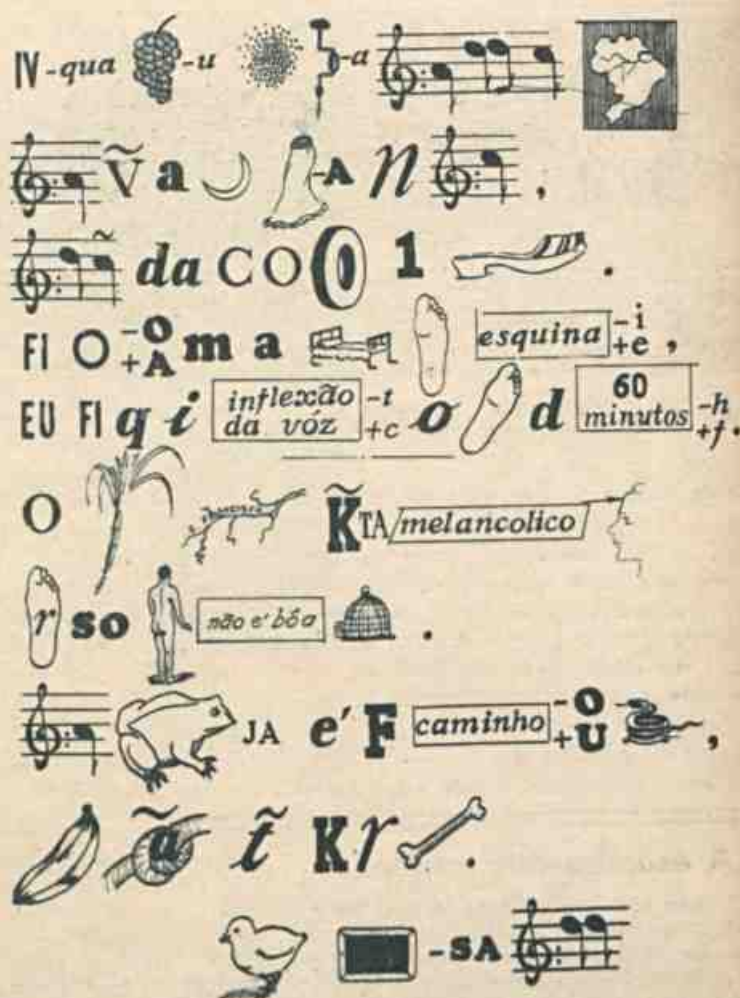 IV -qua -u -a
Ṽ a -A n ,
~ da CO 1 .
FI O -O +A m a esquina -i +e ,
EU FI q i inflexão da vóz -t +c o d 60 minutos -h +f .
O K̃ TA melancolico
r so não e' bôa .
JA e' F caminho -O +U ,
ã t̃ K r .
-SA